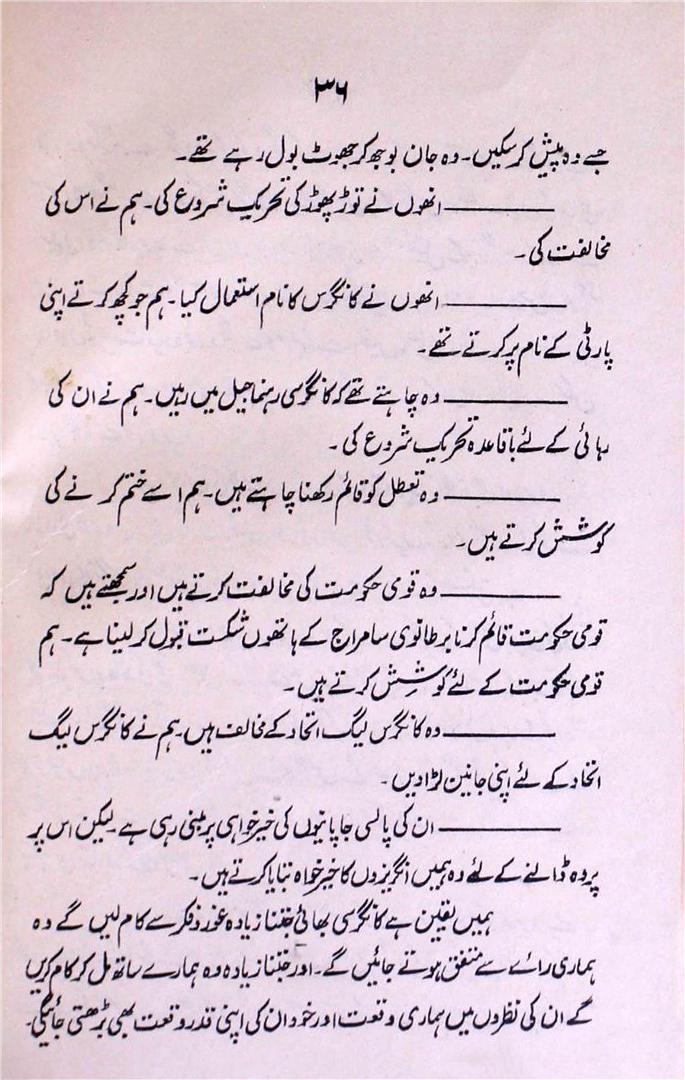 ۳۶
جسے وہ پیش کر سکیں۔ وہ جان بوجھ کر جھوٹ بول رہے تھے۔
ــــــــــــ انھوں نے توڑ پھوڑ کی تحریک شروع کی۔ ہم نے اس کی
مخالفت کی۔
ــــــــــــ انھوں نے کانگرس کا نام استعمال کیا۔ ہم جو کچھ کرتے اپنی
پارٹی کے نام پر کرتے تھے۔
ــــــــــــ وہ چاہتے تھے کہ کانگرسی رہنما جیل میں رہیں۔ ہم نے ان کی
رہائی کے لئے باقاعدہ تحریک شروع کی۔
ــــــــــــ وہ تعطل کو قائم رکھنا چاہتے ہیں۔ ہم اسے ختم کرنے کی
کوشش کرتے ہیں۔
ــــــــــــ وہ قومی حکومت کی مخالفت کرتے ہیں اور سمجھتے ہیں کہ
قومی حکومت قائم کرنا برطانوی سامراج کے ہاتھوں شکست قبول کر لینا ہے۔ ہم
قومی حکومت کے لئے کوشش کرتے ہیں۔
ــــــــــــ وہ کانگرس لیگ اتحاد کے مخالف ہیں۔ ہم نے کانگرس لیگ
اتحاد کے لئے اپنی جانیں لڑا دیں۔
ــــــــــــ ان کی پالسی جاپانیوں کی خیر خواہی پر مبنی رہی ہے۔ لیکن اس پر
پردہ ڈالنے کے لئے وہ ہمیں انگریزوں کا خیر خواہ بتایا کرتے ہیں۔
ہمیں یقین ہے کانگرسی بھائی جتنا زیادہ غور و فکر سے کام لیں گے وہ
ہماری رائے سے متفق ہوتے جائیں گے۔ اور جتنا زیادہ وہ ہمارے ساتھ مل کر کام کریں
گے ان کی نظروں میں ہماری وقعت اور خود ان کی اپنی قدر وقعت بھی بڑھتی جائیگی۔